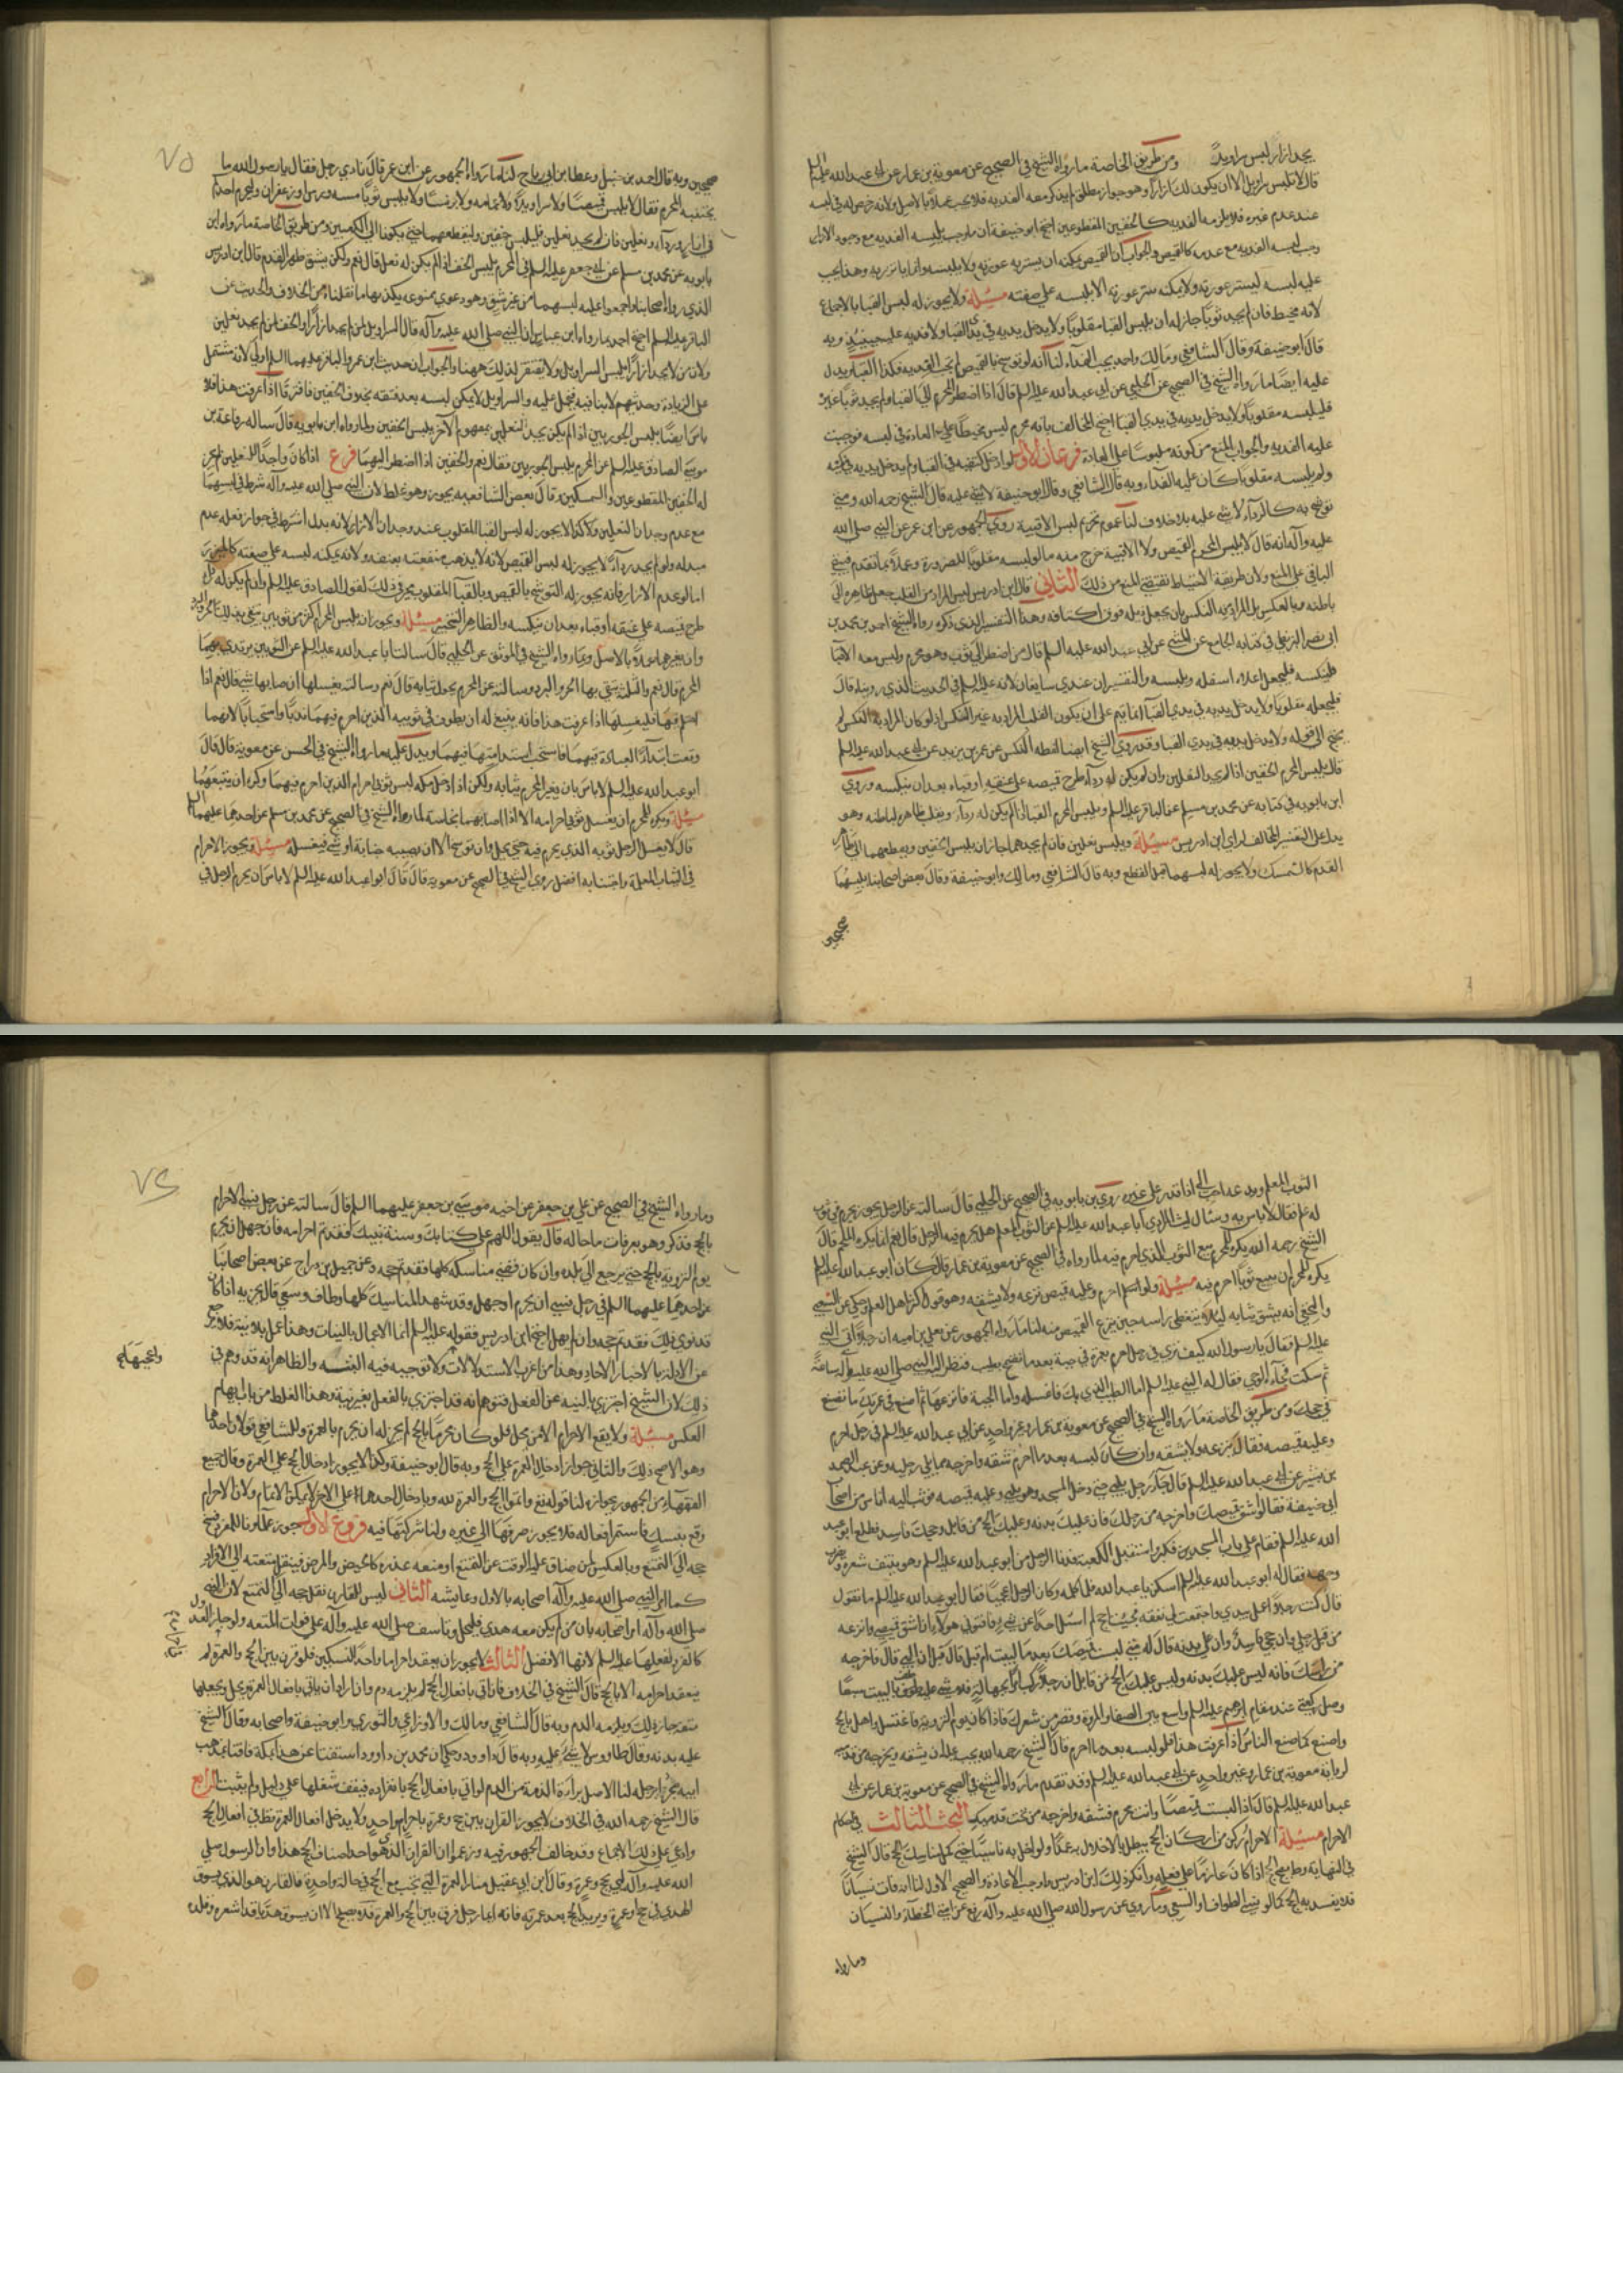 يجد ازار لبس سراويل ومن طريق الخاصة ما رواه الشيخ في الصحيح عن معوية بن عمار عن ابي عبد الله عليه السلم
قال لا تلبس سراويل الا ان يكون لك ازار وهو جواز مطلق لم يذكر معه الفديه فلا يجب عملا بالاصل ولانه رخص له في لبسه
عند عدم غيره فلا يلزمه الفديه كالخفين المقطوعين احتج ابو حنيفة ان ما وجب بلبسه الفديه مع وجود الازار
وجب لبسه الفديه مع عدمه كالقميص والجواب ان القميص يمكنه ان يستتر به عورته ولا يلبسه وانما ياتزر به وهذا يجب
عليه لبسه ليستر عورته ولا يمكنه ستر عورته الا بلبسه على صفته مسئلة ولا يجوز له لبس القبا بالاجماع
لانه مخيط فان لم يجد ثوبا جاز له ان يلبس القبا مقلوبا ولا يدخل يديه في يدي القبا ولا فديه عليه حينئذ وبه
قال ابو حنيفة وقال الشافعي ومالك واحمد يجب الفداء لنا انه لو توشح بالقميص لم تجب الفديه فكذا القبا ويدل
عليه ايضا ما رواه الشيخ في الصحيح عن الحلبي عن ابي عبد الله عليه السلم قال اذا اضطر المحرم الى القبا ولم يجد ثوبا غيره
فليلبسه مقلوبا ولا يدخل يديه في يدي القبا احتج المخالف بانه محرم لبس مخيطا على العادة في لبسه فوجبت
عليه الفديه والجواب المنع من كونه ملبوسا على العادة فرعان الاول لو ادخل كتفيه في القبا ولم يدخل يديه في كمه
ولم يلبسه مقلوبا كان عليه الفداء وبه قال الشافعي وقال ابو حنيفة لا شئ عليه قال الشيخ رحمه الله ومتى
توشح به كالرداء لا شئ عليه بلا خلاف لنا عموم تحريم لبس الاقبية روى الجمهور عن ابن عمر عن النبي صلى الله
عليه وآله انه قال لا يلبس المحرم القميص ولا الاقبية خرج منه ما لو لبسه مقلوبا للضرورة وعملا بما تقدم فيبقى
الباقي على المنع ولان طريقة الاحتياط تقتضي المنع من ذلك الثاني قال ابن ادريس ليس المراد من القلب جعل ظاهره الى
باطنه وبالعكس بل المراد به النكس بان يجعل ذيله فوق اكتافه وهذا التفسير الذي ذكره رواه الشيخ احمد بن محمد بن
ابي نصر البزنطي في كتابه الجامع عن المثنى عن ابي عبد الله عليه السلم قال من اضطر الى ثوب وهو محرم وليس معه الا قبا
فلينكسه فليجعل اعلاه اسفله ويلبسه والتفسيران عندي سايغان لانه عليه السلم في الحديث الذي رويناه قال
فليجعله مقلوبا ولا يدخل يديه في يدي القبا انما يتم على ان يكون القلب المراد به غير النكس اذ لو كان المراد به النكس لم
يحتج الى قوله ولا يدخل يديه في يدي القبا وقد روى الشيخ ايضا لفظه النكس عن عمر بن يزيد عن ابي عبد الله عليه السلم
قال يلبس المحرم الخفين اذا لم يجد النعلين وان لم يكن له رداء طرح قميصه على عنقه او قباه بعد ان ينكسه وروى
ابن بابويه في كتابه عن محمد بن مسلم عن الباقر عليه السلم ويلبس المحرم القبا اذا لم يكن له رداء ويقلب ظاهره لباطنه وهو
يدل على التفسير المخالف لراي ابن ادريس مسئلة ويلبس نعلين فان لم يجدهما جاز ان يلبس الخفين ويقطعهما الى ظاهر
القدم كالشمشك ولا يجوز له لبسهما قبل القطع وبه قال الشافعي ومالك وابو حنيفة وقال بعض اصحابنا يلبسهما
صحيحين
٧٥
صحيحين وبه قال احمد بن حنبل وعطا بن ابي رباح لنا ما رواه الجمهور عن ابن عمر قال نادى رجل فقال يا رسول الله ما
يجتنب المحرم فقال لا يلبس قميصا ولا سراويلا ولا عمامه ولا برنسا ولا يلبس ثوبا مسه ورس او زعفران وليحرم احدكم
في ازار ورداء ونعلين فان لم يجد نعلين فليلبس خفين وليقطعهما حتى يكونا الى الكعبين ومن طريق الخاصة ما رواه ابن
بابويه عن محمد بن مسلم عن ابي جعفر عليه السلم في المحرم يلبس الخف اذا لم يكن له نعل قال نعم ولكن يشق ظهر القدم قال ابن ادريس
الذي رواه اصحابنا واجمعوا عليه لبسهما من غير شق وهو دعوى ممنوعه يكذبها ما نقلناه من الخلاف والحديث عن
الباقر عليه السلم احتج احمد بما رواه ابن عباس ان النبي صلى الله عليه وآله قال السراويل لمن لم يجد ازارا والخف لمن لم يجد نعلين
ولان من لا يجد ازارا يلبس السراويل ولا يفتقر لذلك ههنا والجواب ان حديث ابن عمر والباقر عليهما السلم اولى لانه مشتمل
على الزيادة وحديثهم لا ينافيه فيحمل عليه والسراويل لا يمكن لبسه بعد فتقه بخلاف الخفين فافترقا اذا عرفت هذا فلا
باس ايضا بلبس الجوربين اذا لم يكن يجد النعلين بمفهوم الآخر يلبس الخفين ولما رواه ابن بابويه قال ساله رفاعة بن
موسى الصادق عليه السلم عن المحرم يلبس الجوربين فقال نعم والخفين اذا اضطر اليهما فرع اذا كان واجدا للنعلين لم يجز
له الخفين المقطوعين والسمكين وقال بعض الشافعيه يجوز وهو غلط لان النبي صلى الله عليه وآله شرط في لبسهما
مع عدم وجدان النعلين وكذا لا يجوز له لبس القبا المقلوب عند وجدان الازار لانه بدل اشترط في جواز فعله عدم
مبدله ولو لم يجد رداء لا يجوز له لبس القميص لانه لا يذهب منفعته بعضه ولانه يمكنه لبسه على صفته كالميزر
اما لو عدم الازار فانه يجوز له التوشح بالقميص وبالقبا المقلوب يجزي ذلك لقول الصادق عليه السلم وان لم يكن له رداء
طرح قميصه على عنقه او قباه بعد ان ينكسه والظاهر التخيير مسئلة ويجوز ان يلبس المحرم اكثر من ثوبين يتقي بذلك الحر والبرد
وان يغيرهما عملا بالاصل وبما رواه الشيخ في الموثق عن الحلبي قال سالت ابا عبد الله عليه السلم عن الثوبين يرتدي بهما
المحرم قال نعم والثلثة يتقي بها الحر والبرد وسالته عن المحرم يحول ثيابه قال نعم وسالته يغسلها ان اصابها شئ قال نعم اذا
احتلم فيها فليغسلها اذا عرفت هذا فانه ينبغي له ان يطوف في ثوبيه الذين احرم فيهما ندبا واستحبابا لانهما
وقعت ابتداء العبادة فيهما فاستحب استدامتها فيهما ويدل عليه ما رواه الشيخ في الحسن عن معوية قال قال
ابو عبد الله عليه السلم لا باس بان يغير المحرم ثيابه ولكن اذا دخل مكه لبس ثوبي احرامه الذين احرم فيهما وكره ان يبيعهما
مسئلة ويكره للمحرم ان يغسل ثوبي احرامه الا اذا اصابهما نجاسة لما رواه الشيخ في الصحيح عن محمد بن مسلم عن احدهما عليهما السلم
قال لا يغسل الرجل ثوبه الذي يحرم فيه حتى يحل وان توسخ الا ان يصيبه جنابة او شئ فيغسله مسئلة ويجوز الاحرام
في الثياب المعلمة واجتنابه افضل روى الشيخ في الصحيح عن معوية قال قال ابو عبد الله عليه السلم لا باس ان يحرم الرجل في
الثوب المعلم ويدعه احب الي اذا قدر على غيره روى ابن بابويه في الصحيح عن الحلبي قال سالته عن الرجل يحرم في ثوب
له علم فقال لا باس به وسال ليث المرادي ابا عبد الله عليه السلم عن الثوب المعلم هل يحرم فيه الرجل قال نعم انما يكره الملحم قال
الشيخ رحمه الله يكره للمحرم بيع الثوب الذي احرم فيه لما رواه في الصحيح عن معوية بن عمار قال كان ابو عبد الله عليه السلم
يكره للمحرم ان يبيع ثوبا احرم فيه مسئلة ولو احرم وعليه قميص نزعه ولا يشقه وهو قول اكثر اهل العلم وحكي عن الشعبي
والنخعي انه يشق ثيابه لئلا يتغطى راسه حين ينزع القميص منه لنا ما رواه الجمهور عن يعلى بن اميه ان رجلا اتى النبي
عليه السلم فقال يا رسول الله كيف ترى في رجل احرم بعمرة في جبة بعد ما تضمخ بطيب فنظر اليه النبي صلى الله عليه وآله ساعة
ثم سكت فجاءه الوحي فقال له النبي عليه السلم اما الطيب الذي بك فاغسله واما الجبة فانزعها ثم اصنع في عمرتك ما تصنع
في حجك ومن طريق الخاصة ما رواه الشيخ في الصحيح عن معوية بن عمار وغير واحد عن ابي عبد الله عليه السلم في رجل احرم
وعليه قميصه فقال ينزعه ولا يشقه وان كان لبسه بعد ما احرم شقه واخرجه مما يلي رجليه وعن عبد الصمد
بن بشير عن ابي عبد الله عليه السلم قال جاء رجل يلبي حتى دخل المسجد وهو يلبي وعليه قميصه فوثب اليه اناس من اصحاب
ابي حنيفة فقالوا شق قميصك واخرجه من رجليك فان عليك بدنه وعليك الحج من قابل وحجك فاسد فطلع ابو عبد
الله عليه السلم فقام على باب المسجد بين فكبر واستقبل الكعبة فدنا الرجل من ابو عبد الله عليه السلم وهو ينتف شعره ويضرب
وجهه فقال له ابو عبد الله عليه السلم اسكن يا عبد الله فلما كلمه وكان الرجل اعجميا فقال ابو عبد الله عليه السلم ما تقول
قال كنت رجلا اعمل بيدي واجتمعت لي نفقه فجئت احج لم اسئل احدا عن شئ فافتوني هولاء ان اشق قميصي وانزعه
من قبل رجلي وان حجي فاسد وان علي بدنه قال له متى لبست قميصك بعد ما لبيت ام قبل قال قبل ان البي قال فاخرجه
من راسك فانه ليس عليك بدنه وليس عليك الحج من قابل اي رجل ركب امرا بجهالة فلا شئ عليه طف بالبيت سبعا
وصل ركعتي عند مقام ابرهيم عليه السلم واسع بين الصفا والمروة وقصر من شعرك فاذا كان يوم التروية فاغتسل واهل بالحج
واصنع كما يصنع الناس اذا عرفت هذا فلو لبسه بعد ما احرم قال الشيخ رحمه الله يجب عليه ان يشقه ويخرجه من قدميه
لرواية معوية بن عمار وغير واحد عن ابي عبد الله عليه السلم وقد تقدم ما رواه الشيخ في الصحيح عن معوية بن عمار عن ابي
عبد الله عليه السلم قال اذا لبست قميصا وانت محرم فشقه واخرجه من تحت قدميك البحث الثالث في احكام
الاحرام مسئلة الاحرام ركن من اركان الحج يبطل بالاخلال به عمدا ولو اخل به ناسيا حتى كمل مناسك الحج قال الشيخ
في النهاية وط يصح الحج اذا كان عازما على فعله وانكر ذلك ابن ادريس واوجب الاعادة والصحيح الاول لنا انه فات نسيانا
فلا يفسد به الحج كما لو نسي الطواف او السعي وما روي عن رسول الله صلى الله عليه وآله رفع عن امتي الخطاء والنسيان
وما رواه
٧٦
وما رواه الشيخ في الصحيح عن علي بن جعفر عن اخيه موسى بن جعفر عليهما السلم قال سالته عن رجل نسي الاحرام
بالحج فذكر وهو بعرفات ما حاله قال يقول اللهم على كتابك وسنة نبيك فقد تم احرامه فان جهل ان يحرم
يوم التروية بالحج حتى يرجع الى بلده وان كان قضى مناسكه كلها فقد تم حجه وعن جميل بن دراج عن بعض اصحابنا
عن احدهما عليهما السلم في رجل نسي ان يحرم او جهل وقد شهد المناسك كلها وطاف وسعى قال يجزيه اذا كان
قد نوى ذلك فقد تم حجه وان لم يهل احتج ابن ادريس بقوله عليه السلم انما الاعمال بالنيات وهذا عمل بلا نية فلا يرجع
عن الادلة بالاخبار الاحاد وهذا من اغرب الاستدلالات ولا توجيه فيه البتة والظاهر انه قد وهم في
واعجبها
ذلك لان الشيخ اجتزى بالنيه عن الفعل فتوهم انه قد اجتزى بالفعل بغير نية وهذا الغلط من باب ايهام
العكس مسئلة ولا يقع الاحرام الا من محل فلو كان محرما بالحج لم يجز له ان يحرم بالعمرة وللشافعي قولان احدهما
وهو الاصح ذلك والثاني جواز ادخال العمرة على الحج وبه قال ابو حنيفة وكذا لا يجوز ادخال الحج على العمرة وقال جميع
الفقهاء من الجمهور بجوازه لنا قوله تعالى واتموا الحج والعمرة لله وبادخال احدهما على الآخر لا يمكن الاتمام ولان الاحرام
وقع بنسك فاستمر افعاله فلا يجوز صرفها الى غيره ولنا شركتها فيه فروع الاول جوز علماونا للمفرد فسخ
حجه الى التمتع وبالعكس لمن ضاق عليه الوقت عن التمتع او منعه عذره كالحيض والمرض فينقل متعته الى الافراد
كما امر النبي صلى الله عليه وآله اصحابه بالاول وعايشه الثاني ليس للقارن نقل حجه الى التمتع لان النبي
صلى الله وآله امر اصحابه بان من لم يكن معه هدي فليحل وتاسف صلى الله عليه وآله على فوات المتعه ولو جاز العدول
كالمفرد لفعلها عليه السلم لانها الافضل الثالث لا يجوز ان يعقد احراما واحدا لنسكين فلو قرن بين الحج والعمرة لم
ينعقد احرامه الا بالحج قال الشيخ في الخلاف فان اتى بافعال الحج لم يلزمه دم وان اراد ان ياتي بافعال العمرة ويحل ويجعلها
متعه جاز ذلك ويلزمه الدم وبه قال الشافعي ومالك والاوزاعي والثوري وابو حنيفة واصحابه وقال الشيخ
عليه بدنه وقال طاووس لا شئ عليه وبه قال داود وحكي ان محمد بن داوود استفتي عن هذا بمكة فافتى بمذهب
ابيه فجروا برجله لنا الاصل براءة الذمة من الدم لو اتى بافعال الحج بانفراده فيقف شغلها على دليل ولم يثبت الرابع
قال الشيخ رحمه الله في الخلاف لا يجوز القران بين حج وعمرة باحرام واحد ولا يدخل افعال العمرة قط في افعال الحج
وادعى على ذلك الاجماع وقد خالف الجمهور فيه وزعموا ان القران الذي هو احد اصناف الحج هذا وان الرسول صلى
الله عليه وآله لبى بحج وعمرة وقال ابن ابي عقيل منا العمرة التي تجب مع الحج في حالة واحدة فالقارن هو الذي يسوق
الهدي في حج وعمرة ويريد الحج بعد عمرته فانه ايما رجل قرن بين الحج والعمرة فلا يصلح الا ان يسوق هديا قد اشعره وقلده